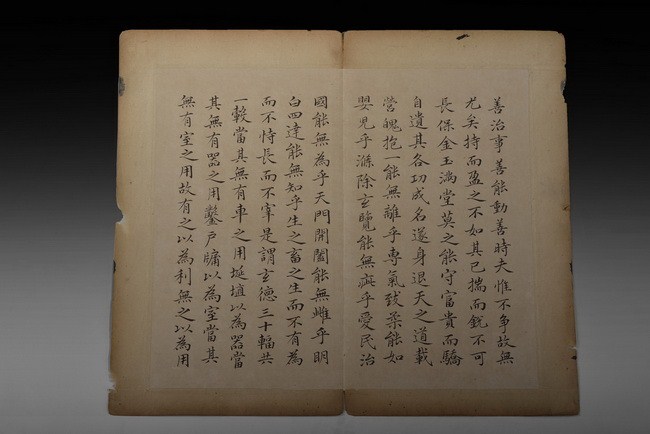 善治事善能動善時夫惟不爭故無
尤矣持而盈之不如其已揣而銳不可
長保金玉滿堂莫之能守富貴而驕
自遺其咎功成名遂身退天之道載
營魄抱一能無離乎專氣致柔能如
嬰兒乎滌除玄覽能無疵乎愛民治
國能無為乎天門開闔能無雌乎明
白四達能無知乎生之畜之生而不有為
而不恃長而不宰是謂玄德三十輻共
一轂當其無有車之用埏埴以為器當
其無有器之用鑿戶牖以為室當其
無有室之用故有之以為利無之以為用